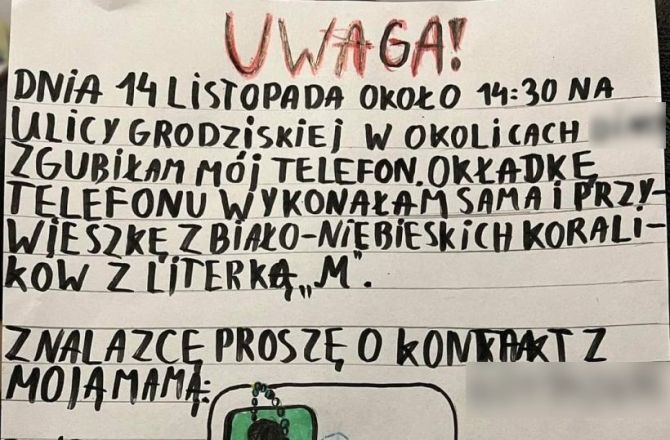 UWAGA!
DNIA 14 LISTOPADA OKOŁO 14:30 NA
ULICY GRODZISKIEJ W OKOLICACH
ZGUBIŁAM MÓJ TELEFON. OKŁADKĘ
TELEFONU WYKONAŁAM SAMA I PRZY-
WIESZKĘ Z BIAŁO-NIEBIESKICH KORALI-
KÓW Z LITERKĄ „M".
ZNALAZCĘ PROSZĘ O KONTAKT Z
MOJĄ MAMĄ: